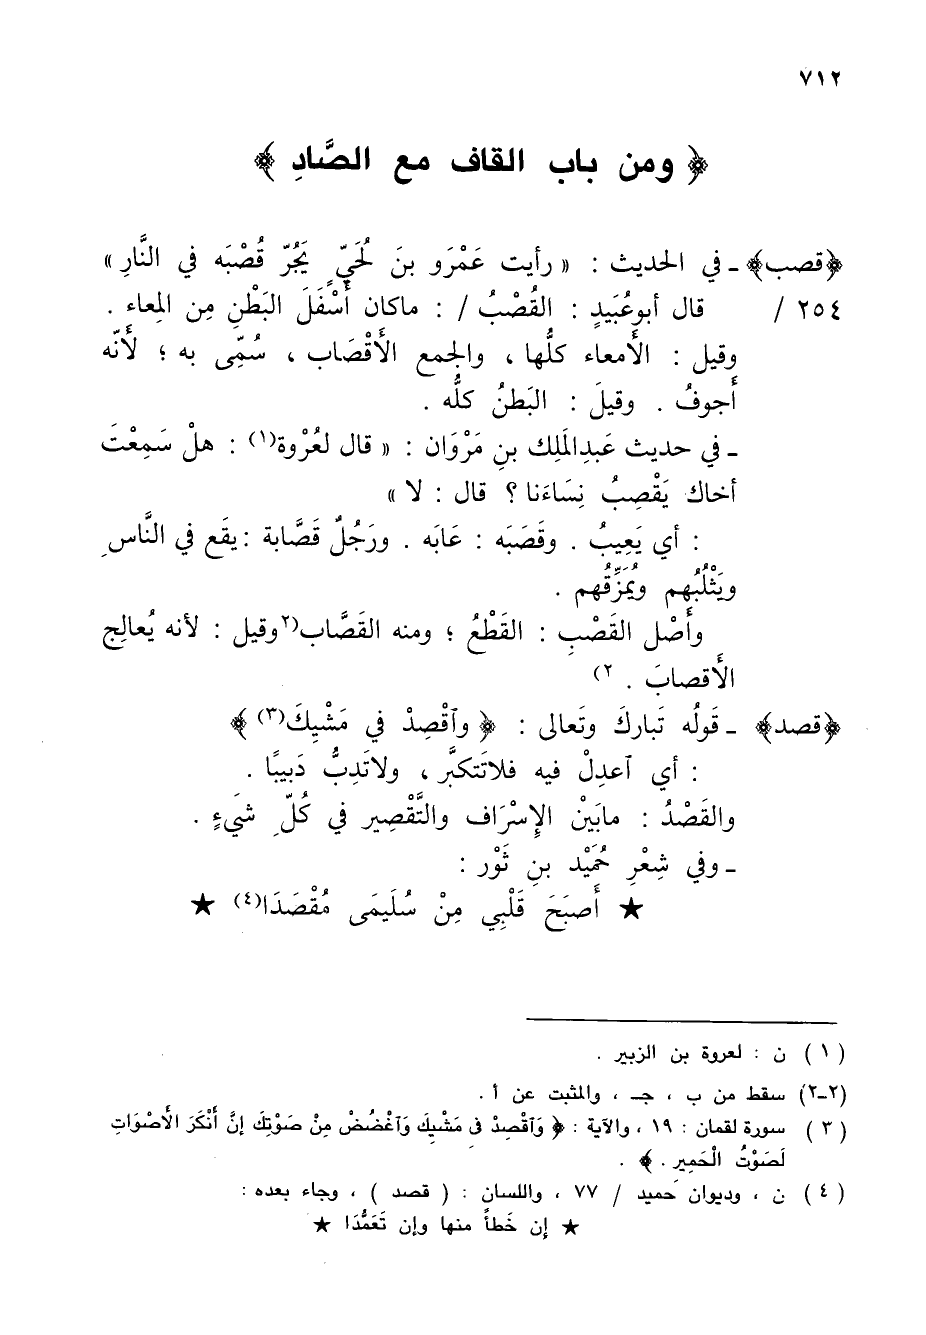 ٧١٢
﴿ ومن باب القاف مع الصَّادِ ﴾
﴿قصب﴾ ـ في الحديث : « رأيت عَمْرَو بنَ لُحَيٍّ يَجُرّ قُصْبَه في النَّارِ »
٢٥٤ / قال أبوعُبَيدٍ : القُصْبُ / : ماكان أَسْفَلَ البَطْنِ مِن المِعاء .
وقيل : الأَمعاء كلُّها ، والجمع الأَقْصَاب ، سُمِّى به ؛ لأَنّه
أَجوفُ . وقيلَ : البَطنُ كلُّه .
ـ في حديث عَبدِالمَلِك بنِ مَرْوَان : « قال لعُرْوة(١) : هلْ سَمِعْتَ
أخاك يَقْصِبُ نِسَاءَنا ؟ قال : لا »
: أي يَعِيبُ . وقَصَبَه : عَابَه . ورَجُلٌ قَصَّابة : يقَع في النَّاسِ
ويَثْلُبُهم ويُمَزِّقُهم .
وأَصْل القَصْبِ : القَطْعُ ؛ ومنه القَصَّاب(٢وقيل : لأنه يُعالِج
الأَقصابَ . ٢)
﴿قصد﴾ ـ قَولُه تَباركَ وتَعالى : ﴿ وٱقْصِدْ في مَشْيِكَ(٣)﴾
: أي ٱعدِلْ فيه فلاتَتكبَّر ، ولاتَدِبُّ دَبيبًا .
والقَصْدُ : مابَيْن الإِسْرَاف والتَّقْصِير في كُلِّ شيَءٍ .
ـ وفي شِعْرِ حُمَيْد بنِ ثَوْر :
★ أَصبَحَ قَلْبِي مِنْ سُلَيمَى مُقْصَدَا(٤) ★
(١) ن : لعروة بن الزبير .
(٢-٢) سقط من ب ، جـ ، والمثبت عن أ .
(٣) سورة لقمان : ١٩ ، والآية : ﴿ وَٱقْصِدْ فى مَشْيِكَ وَٱغْضُضْ مِنْ صَوْتِكَ إنَّ أَنْكَرَ الأَصْوَاتِ
لَصَوْتُ الْحَمِيرِ . ﴾ .
(٤) ن ، وديوان حميد / ٧٧ ، واللسان : ( قصد ) ، وجاء بعده :
★ إن خَطأً منها وإن تَعَمُّدَا ★